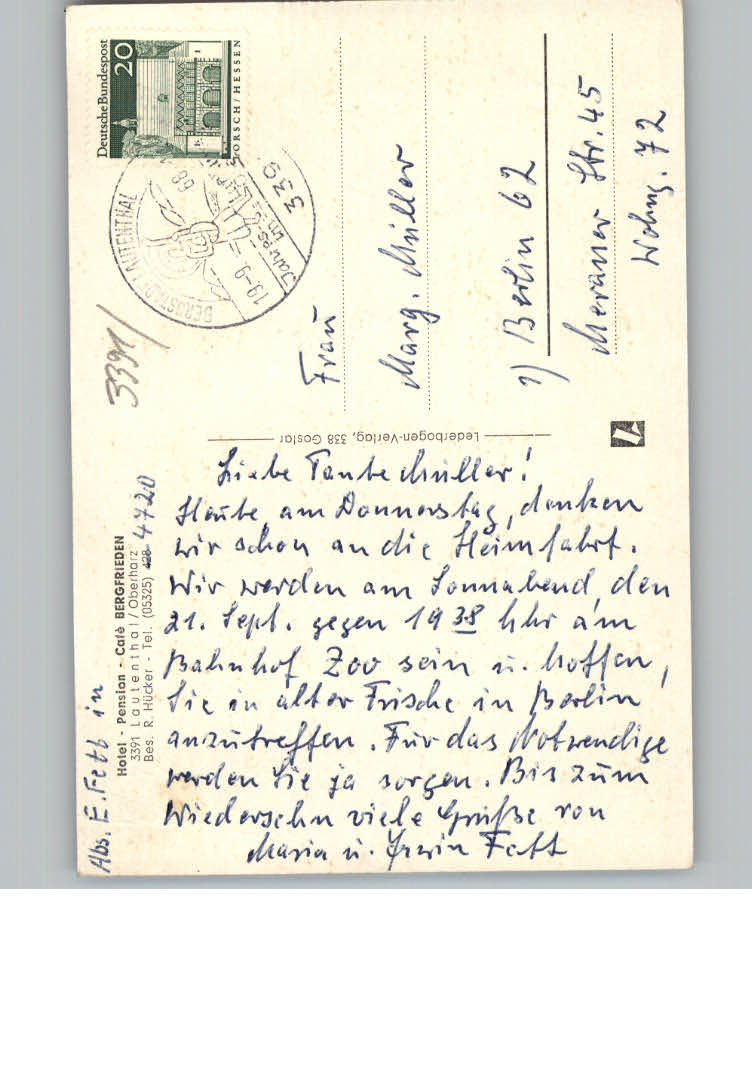 Abs. E. Fett in
Hotel - Pension - Café BERGFRIEDEN
3391 Lautenthal/Oberharz
Bes. R. Hücker - Tel. (05325) 428 4720
Liebe Tante Müller!
Heute am Donnerstag, denken
wir schon an die Heimfahrt.
Wir werden am Sonnabend, den
21. Sept. gegen 19 38 Uhr am
Bahnhof Zoo sein u. hoffen,
Sie in alter Frische in Berlin
anzutreffen. Für das Notwendige
werden Sie ja sorgen. Bis zum
Wiedersehn viele Grüße von
Maria u. Erwin Fett
Lederbogen-Verlag, 338 Goslar
3391/
Deutsche Bundespost
20
LORSCH/HESSEN
BERGSTADT LAUTENTHAL
339
19-9
68
Frau
Marg. Müller
1) Berlin 62
Meraner Str. 45
Wohng. 72